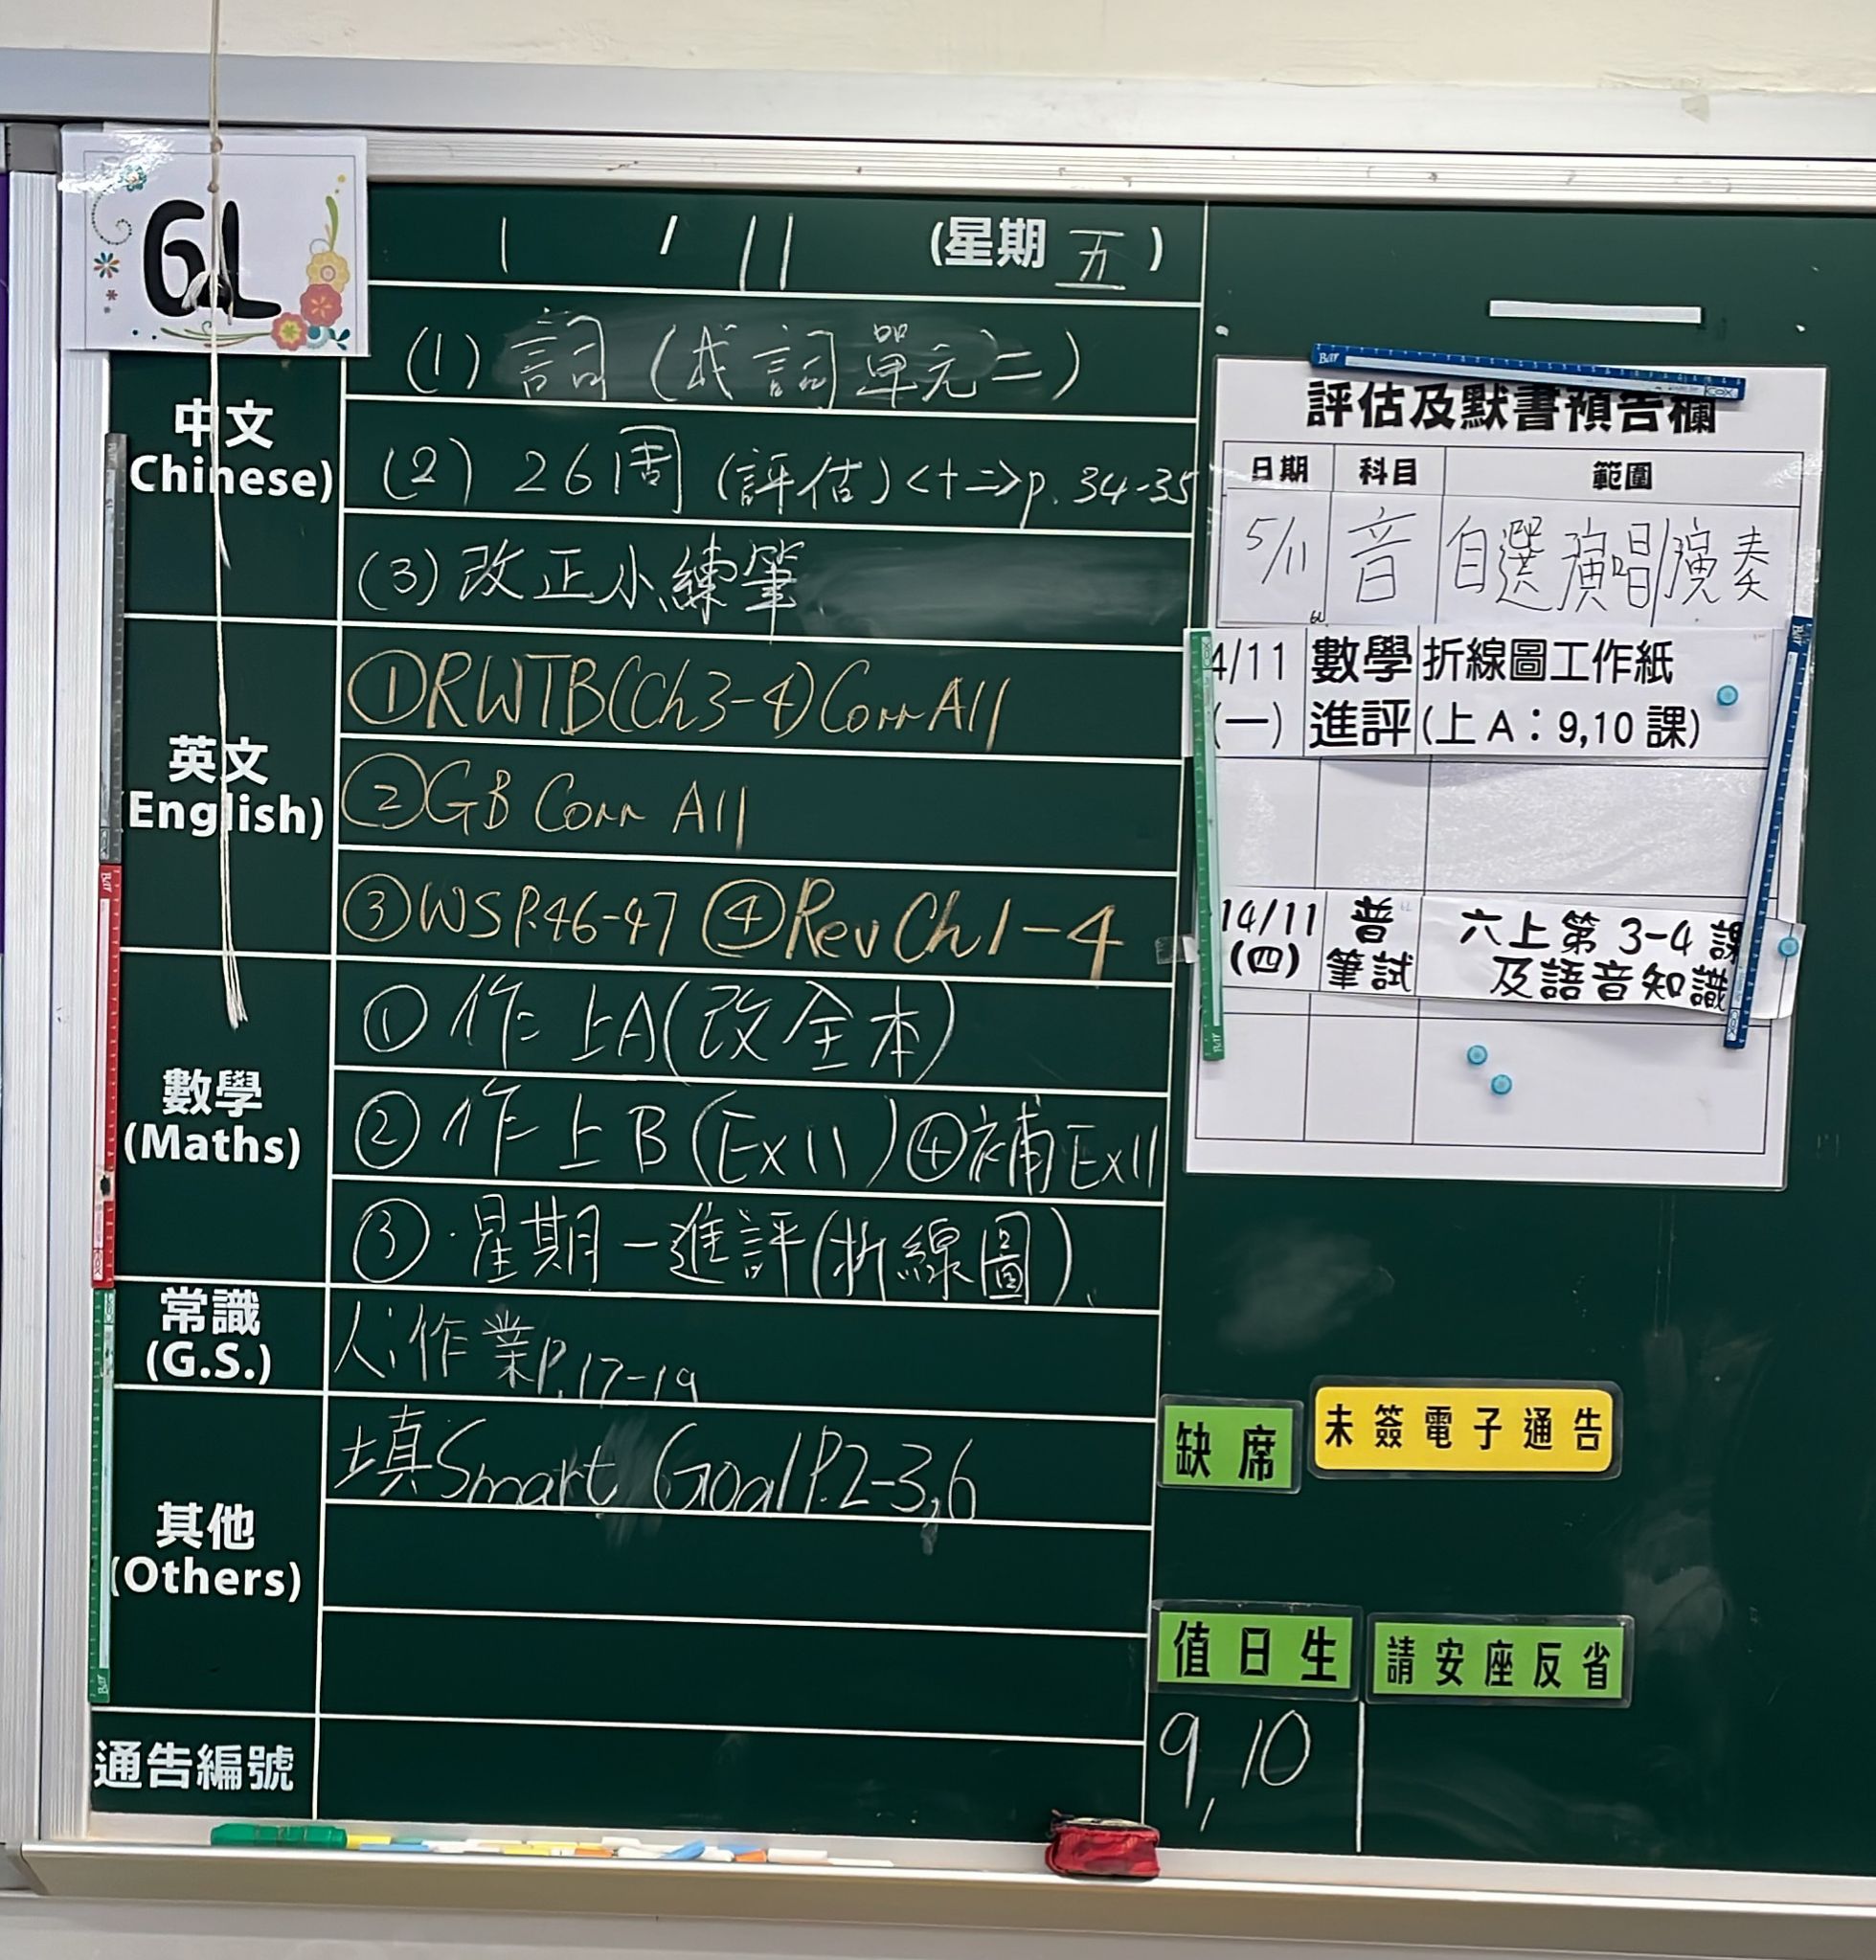 6L
1 / 11 (星期 五 )
中文
(Chinese)
(1) 詞 (成詞單元二)
(2) 26周 (評估) <十二> p. 34-35
(3) 改正小練筆
英文
(English)
①RWTB(Ch3-4) Corr All
②GB Corr All
③WS P.46-47 ④Rev Ch1-4
數學
(Maths)
① 作上A(改全本)
② 作上B(Ex11) ④補Ex11
③ 星期一進評(折線圖)
常識
(G.S.)
人:作業P.17-19
其他
(Others)
填Smart Goal P.2-3,6
通告編號
評估及默書預告欄
日期 科目 範圍
5/11 音 自選演唱/演奏
4/11 數學 折線圖工作紙
(一) 進評 (上 A：9,10 課)
14/11 普 六上第 3-4 課
(四) 筆試 及語音知識
缺席 未簽電子通告
值日生 請安座反省
9, 10